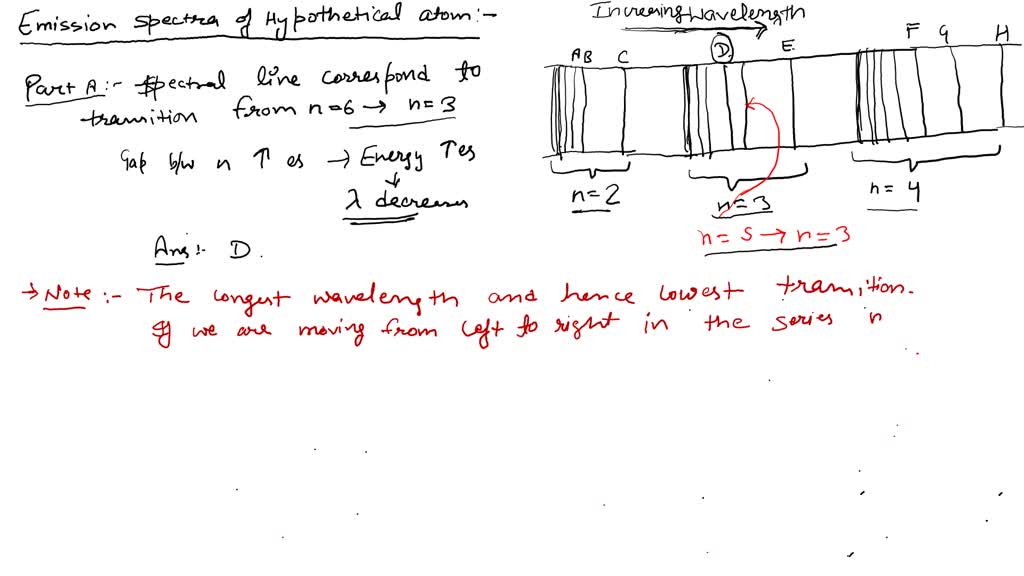 Emission spectra of Hypothetical atom:-
Increasing wavelength
A B C D. E F G H
Part A:- Spectral line correspond to
transition from n=6 → n=3
Gap b/w n ↑es → Energy ↑es
↓
λ decreases
n=2
n=3
n=4
n=5 → n=3
Ans:- D.
→ Note:- The longest wavelength and hence lowest transition.
If we are moving from left to right in the series n